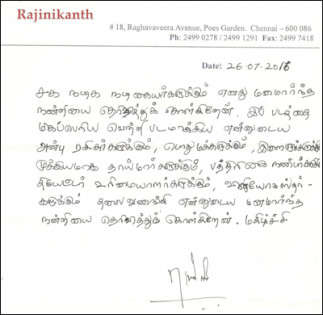 Rajinikanth
# 18, Raghavaveera Avenue, Poes Garden. Chennai – 600 086
Ph: 2499 0278 / 2499 1291 Fax: 2499 7418
Date: 26-07-2016
சக நடிக நடிகையர்களுக்கும் எனது மனமார்ந்த
நன்றியை தெரிவித்துக் கொள்கிறேன். இப் படத்தை
மகப்பெரிய வெற்றி படமாக்கிய என்னுடைய
அன்பு ரசிகர்களுக்கும், பொது மக்களுக்கும்,
முக்கியமாக தாய்மார்களுக்கும், பத்திரிகை நண்பர்களுக்கும்
தியேட்டர் உரிமையாளர்களுக்கும், வினியோகஸ்தர்-
களுக்கும் தலைவணங்கி என்னுடைய மனமார்ந்த
நன்றியை தெரிவித்துக் கொள்கிறேன். மகிழ்ச்சி